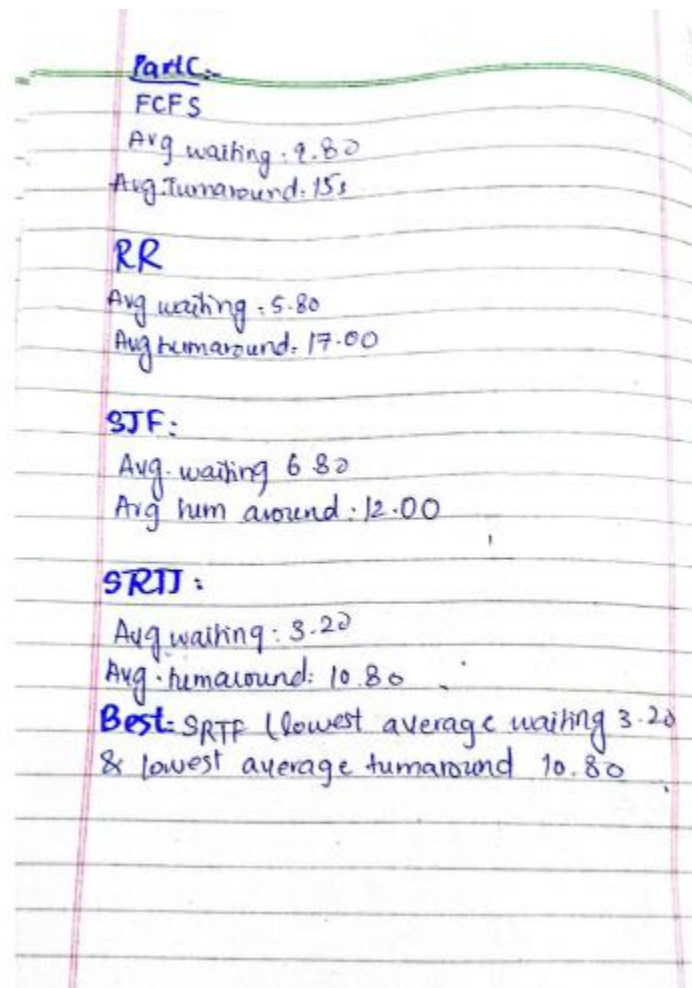 Part C:-
FCFS
Avg waiting : 9.80
Avg. Turnaround : 15s
RR
Avg waiting : 5.80
Avg turnaround : 17.00
SJF:
Avg. waiting 6.80
Avg turn around : 12.00
SRTJ :
Avg waiting : 3.20
Avg. turnaround : 10.80
Best:- SRTF (lowest average waiting 3.20
& lowest average turnaround 10.80